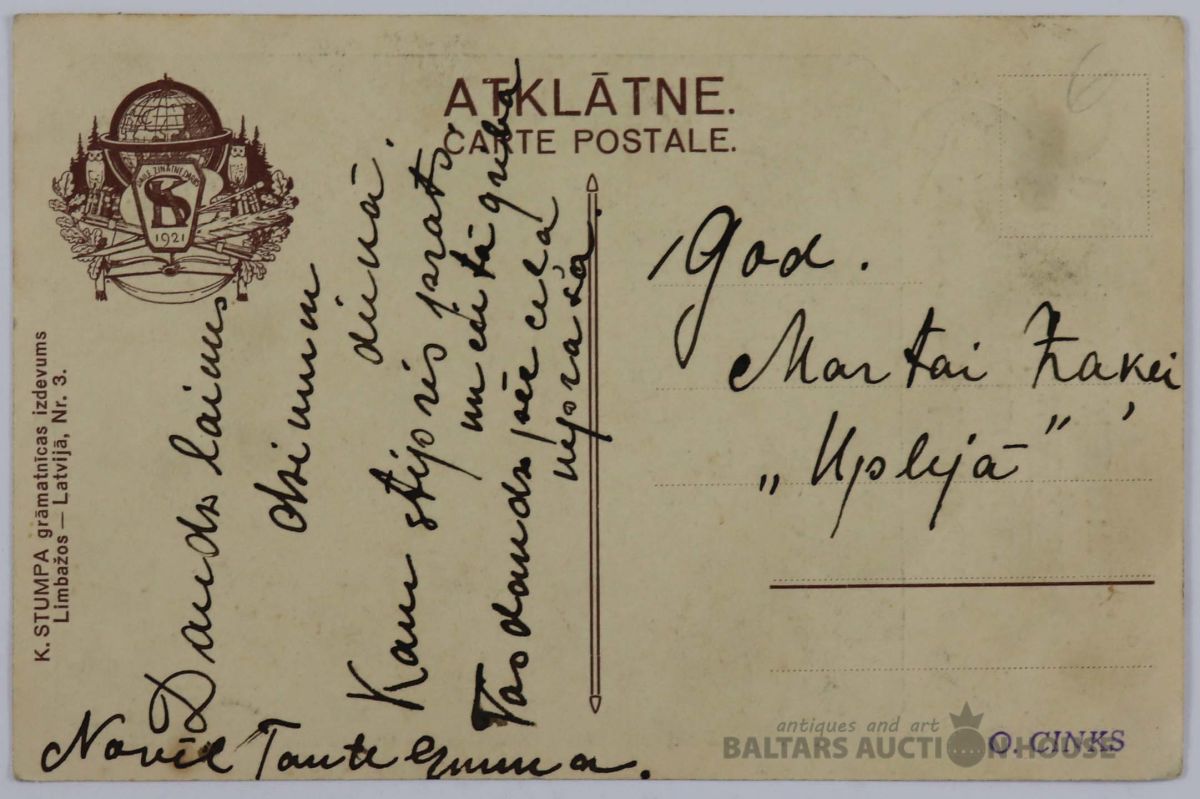 ATKLĀTNE.
CARTE POSTALE.
ZINĀTNE
KS
1921
K. STUMPA grāmatnīcas izdevums
Limbažos — Latvijā, Nr. 3.
Daudz laimes
dzimum
dienā.
Kam stiprs prats
un cieta griba
Tas daudz pēc ciea
neprasa.
Novēl Tante Emma.
God.
Martai Zaķei
„Uplejā"
6
O. CINKS
antiques and art
BALTARS AUCTION HOUSE